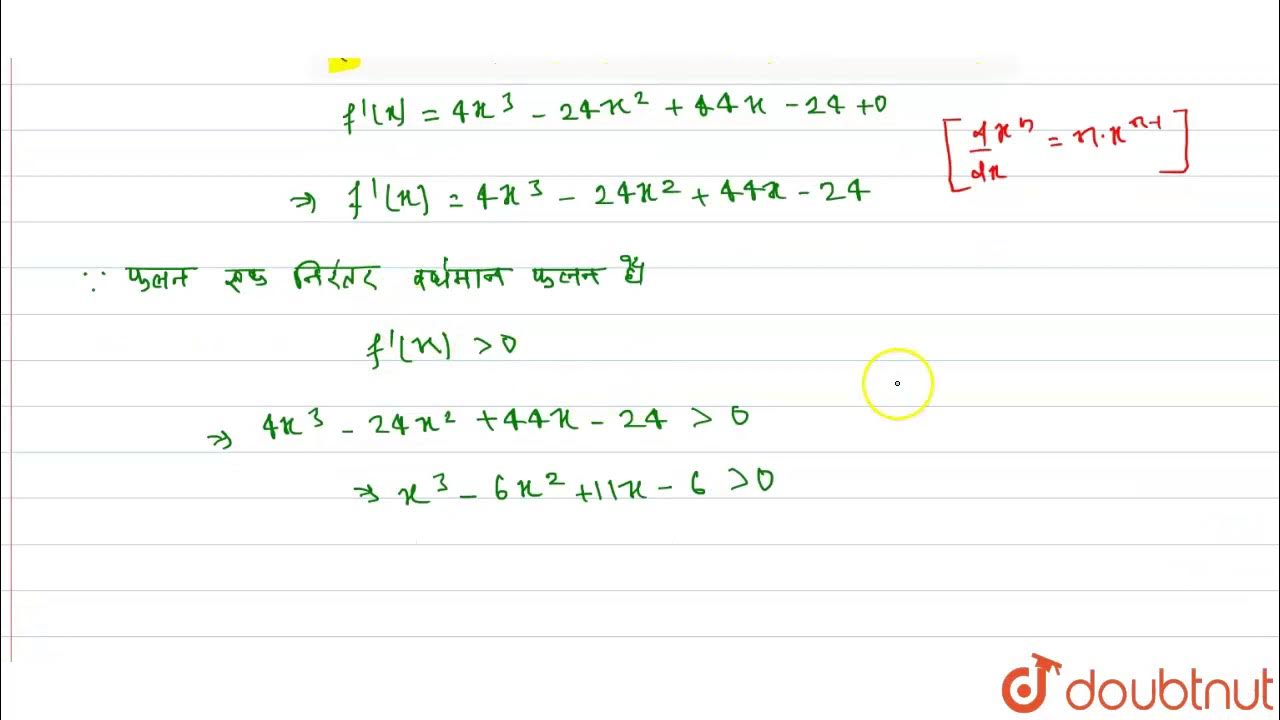 f'(x) = 4x³ - 24x² + 44x - 24 + 0
[d/dx xⁿ = n·xⁿ⁻¹]
⇒ f'(x) = 4x³ - 24x² + 44x - 24
∵ फलन एक निरंतर वर्धमान फलन है
f'(x) > 0
⇒ 4x³ - 24x² + 44x - 24 > 0
⇒ x³ - 6x² + 11x - 6 > 0
doubtnut